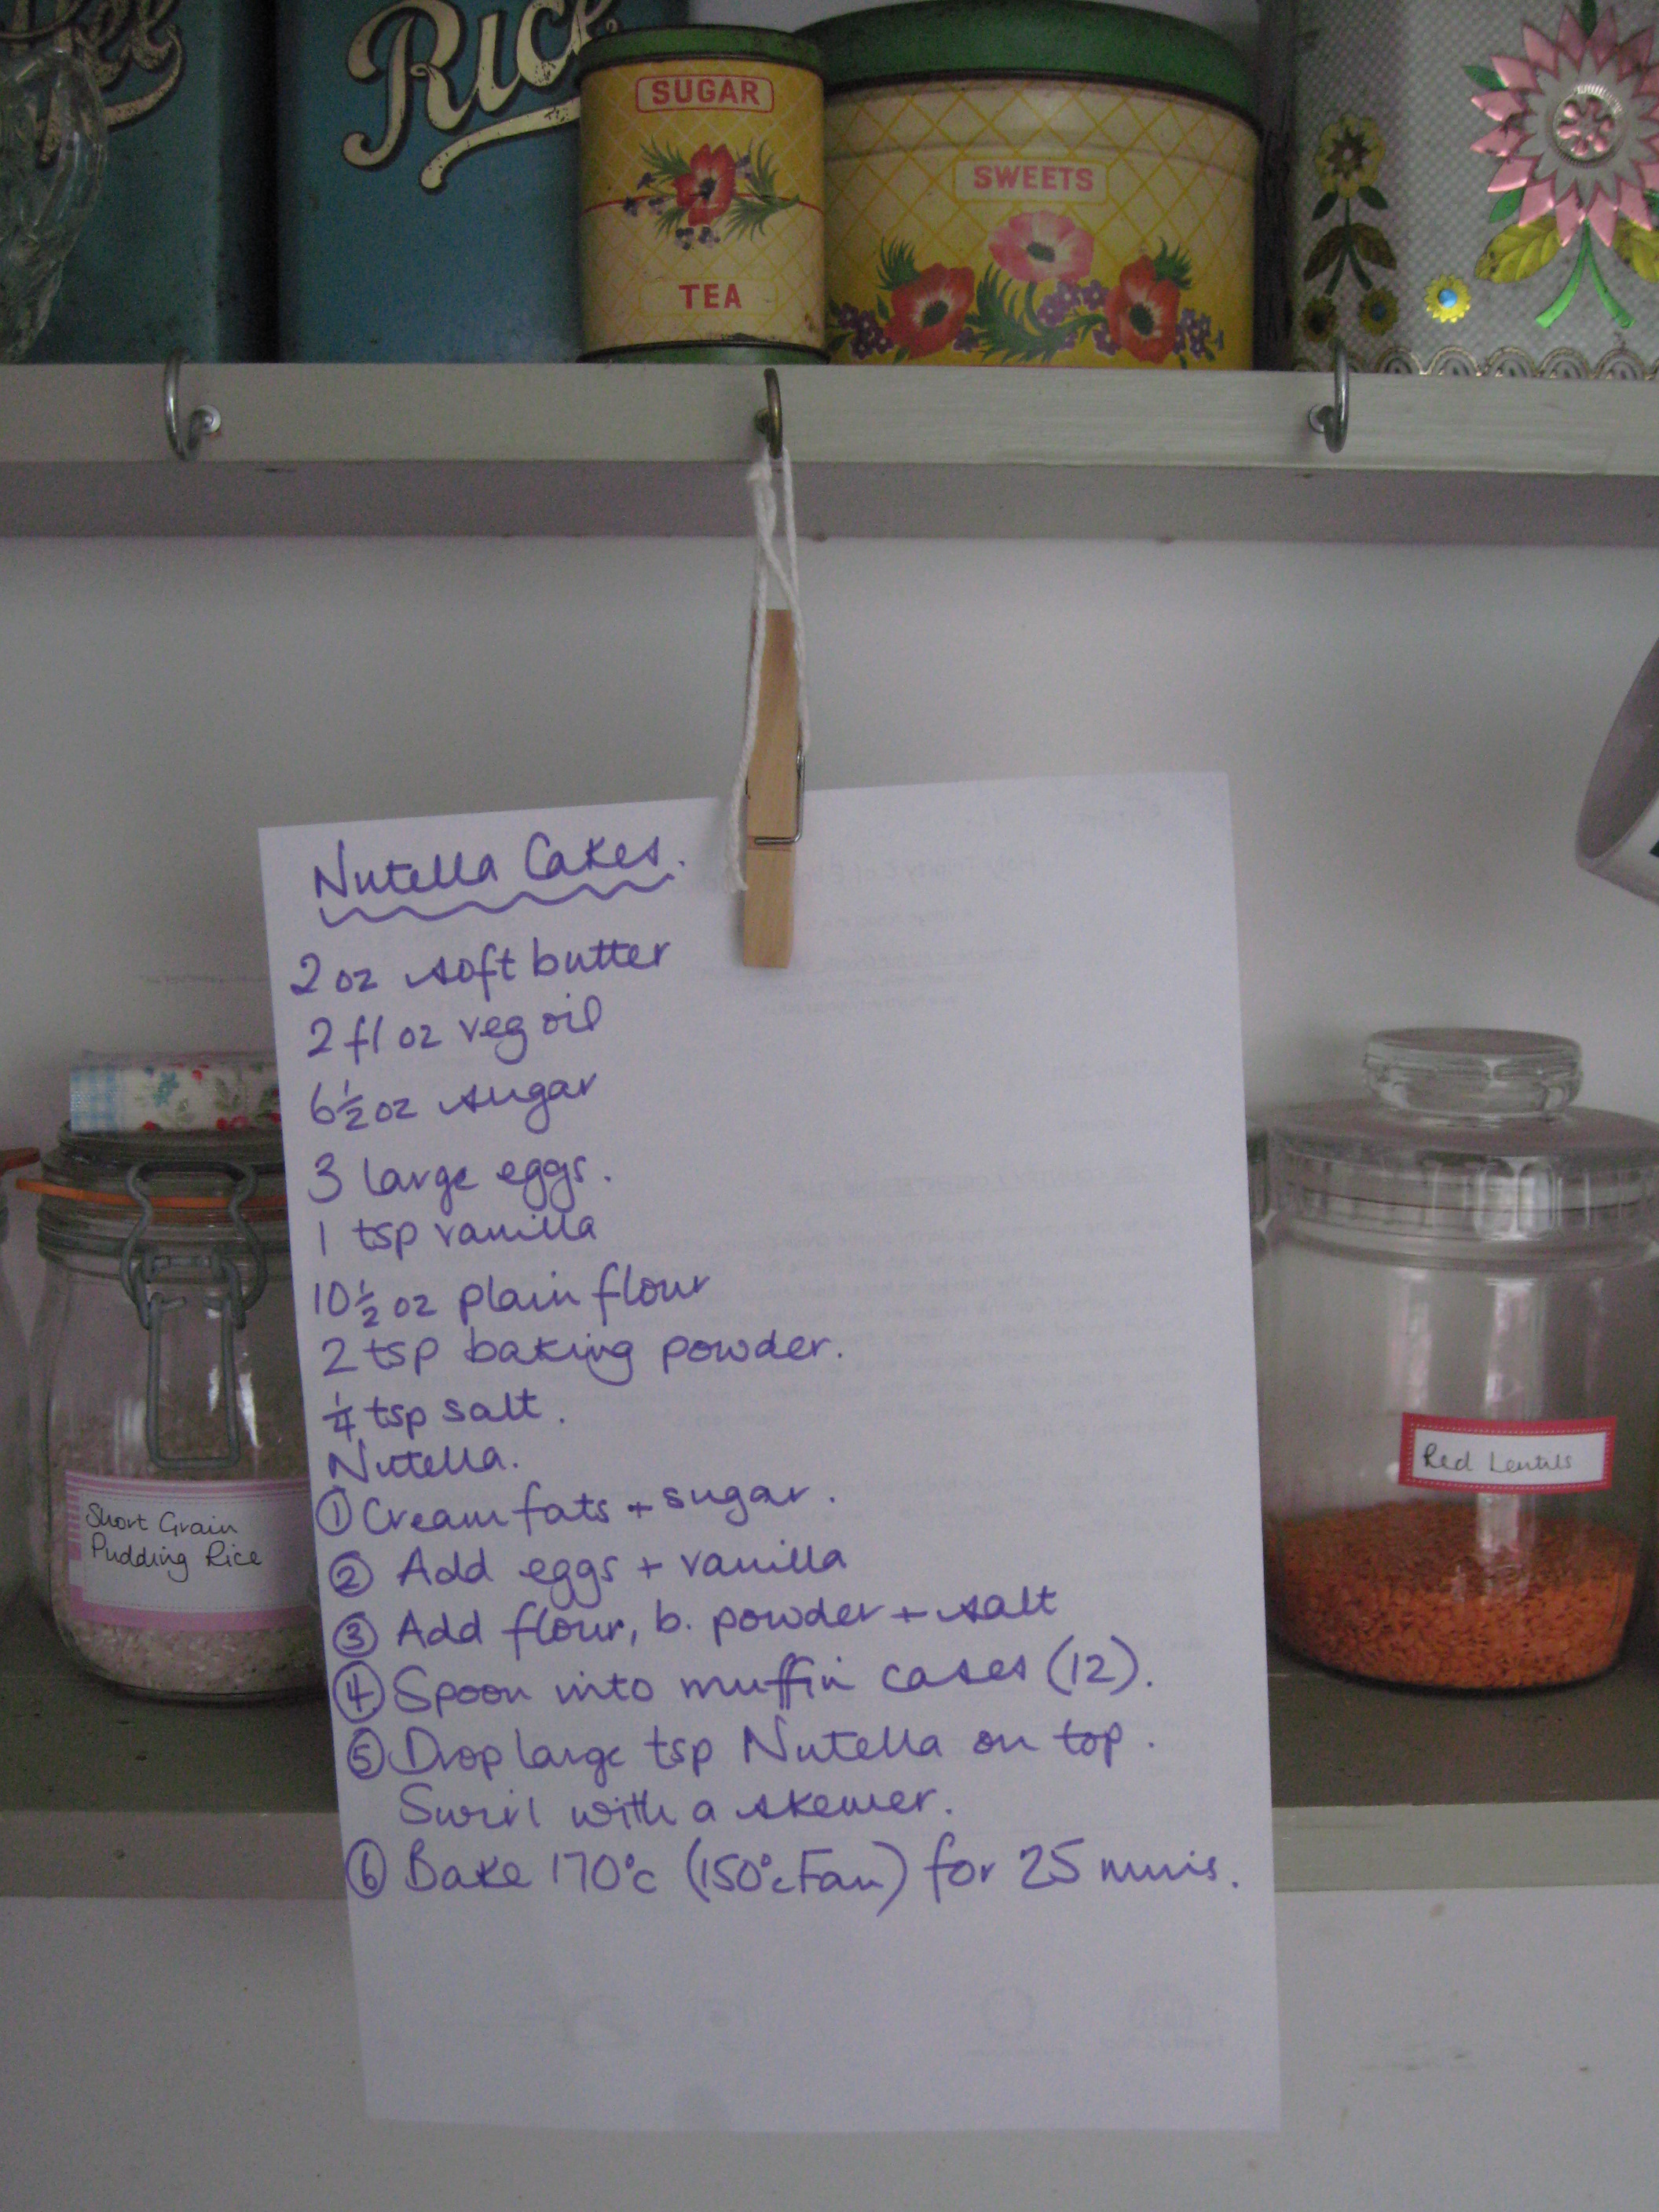 Rice
SUGAR
TEA
SWEETS
Nutella Cakes.
2 oz soft butter
2 fl oz veg oil
6 1/2 oz sugar
3 large eggs.
1 tsp vanilla
10 1/2 oz plain flour
2 tsp baking powder.
1/4 tsp salt.
Nutella.
① Cream fats + sugar.
② Add eggs + vanilla
③ Add flour, b. powder + salt
④ Spoon into muffin cases (12).
⑤ Drop large tsp Nutella on top.
Swirl with a skewer.
⑥ Bake 170°c (150°c Fan) for 25 mins.
Short Grain
Pudding Rice
Red Lentils